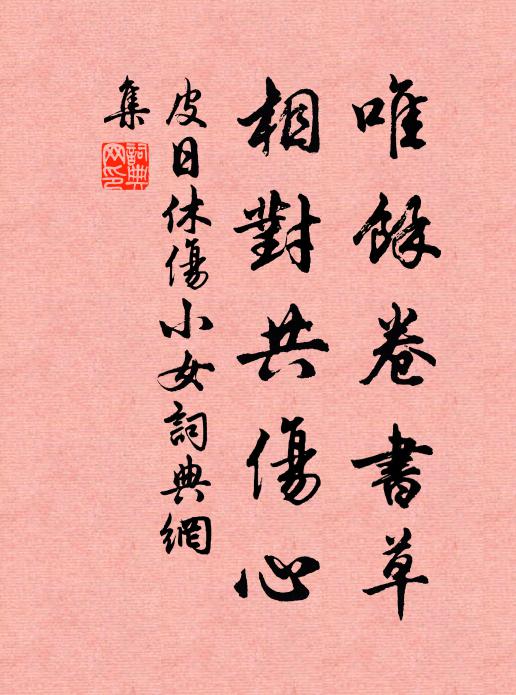 唯餘卷書草
相對共傷心
皮日休傷小女詞典網
集
詞典網印